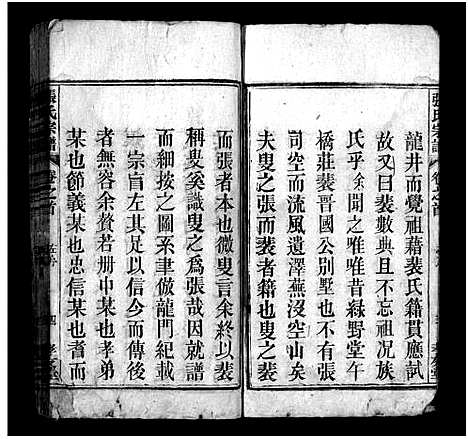 張氏宗譜
卷之首
龍井而覺祖藉裴氏籍貫應試
故又曰裴張夫且不忘典況族
氏乎余聞之唯唯昔綠野堂午
橋莊裴晉國公別墅也不有張
司空而流風遺澤蕪沒空山矣
夫叟之張而裴者籍也叟之裴
而張者本也微叟言余終以裴
稱叟奚識叟之為張哉因就譜
而細按之圖系聿倣龍門紀載
一宗盲左其足以信今而傳後
者無容余若册中某也孝弟
某也節義某也忠信某也耆而
張氏宗譜
卷之首
四